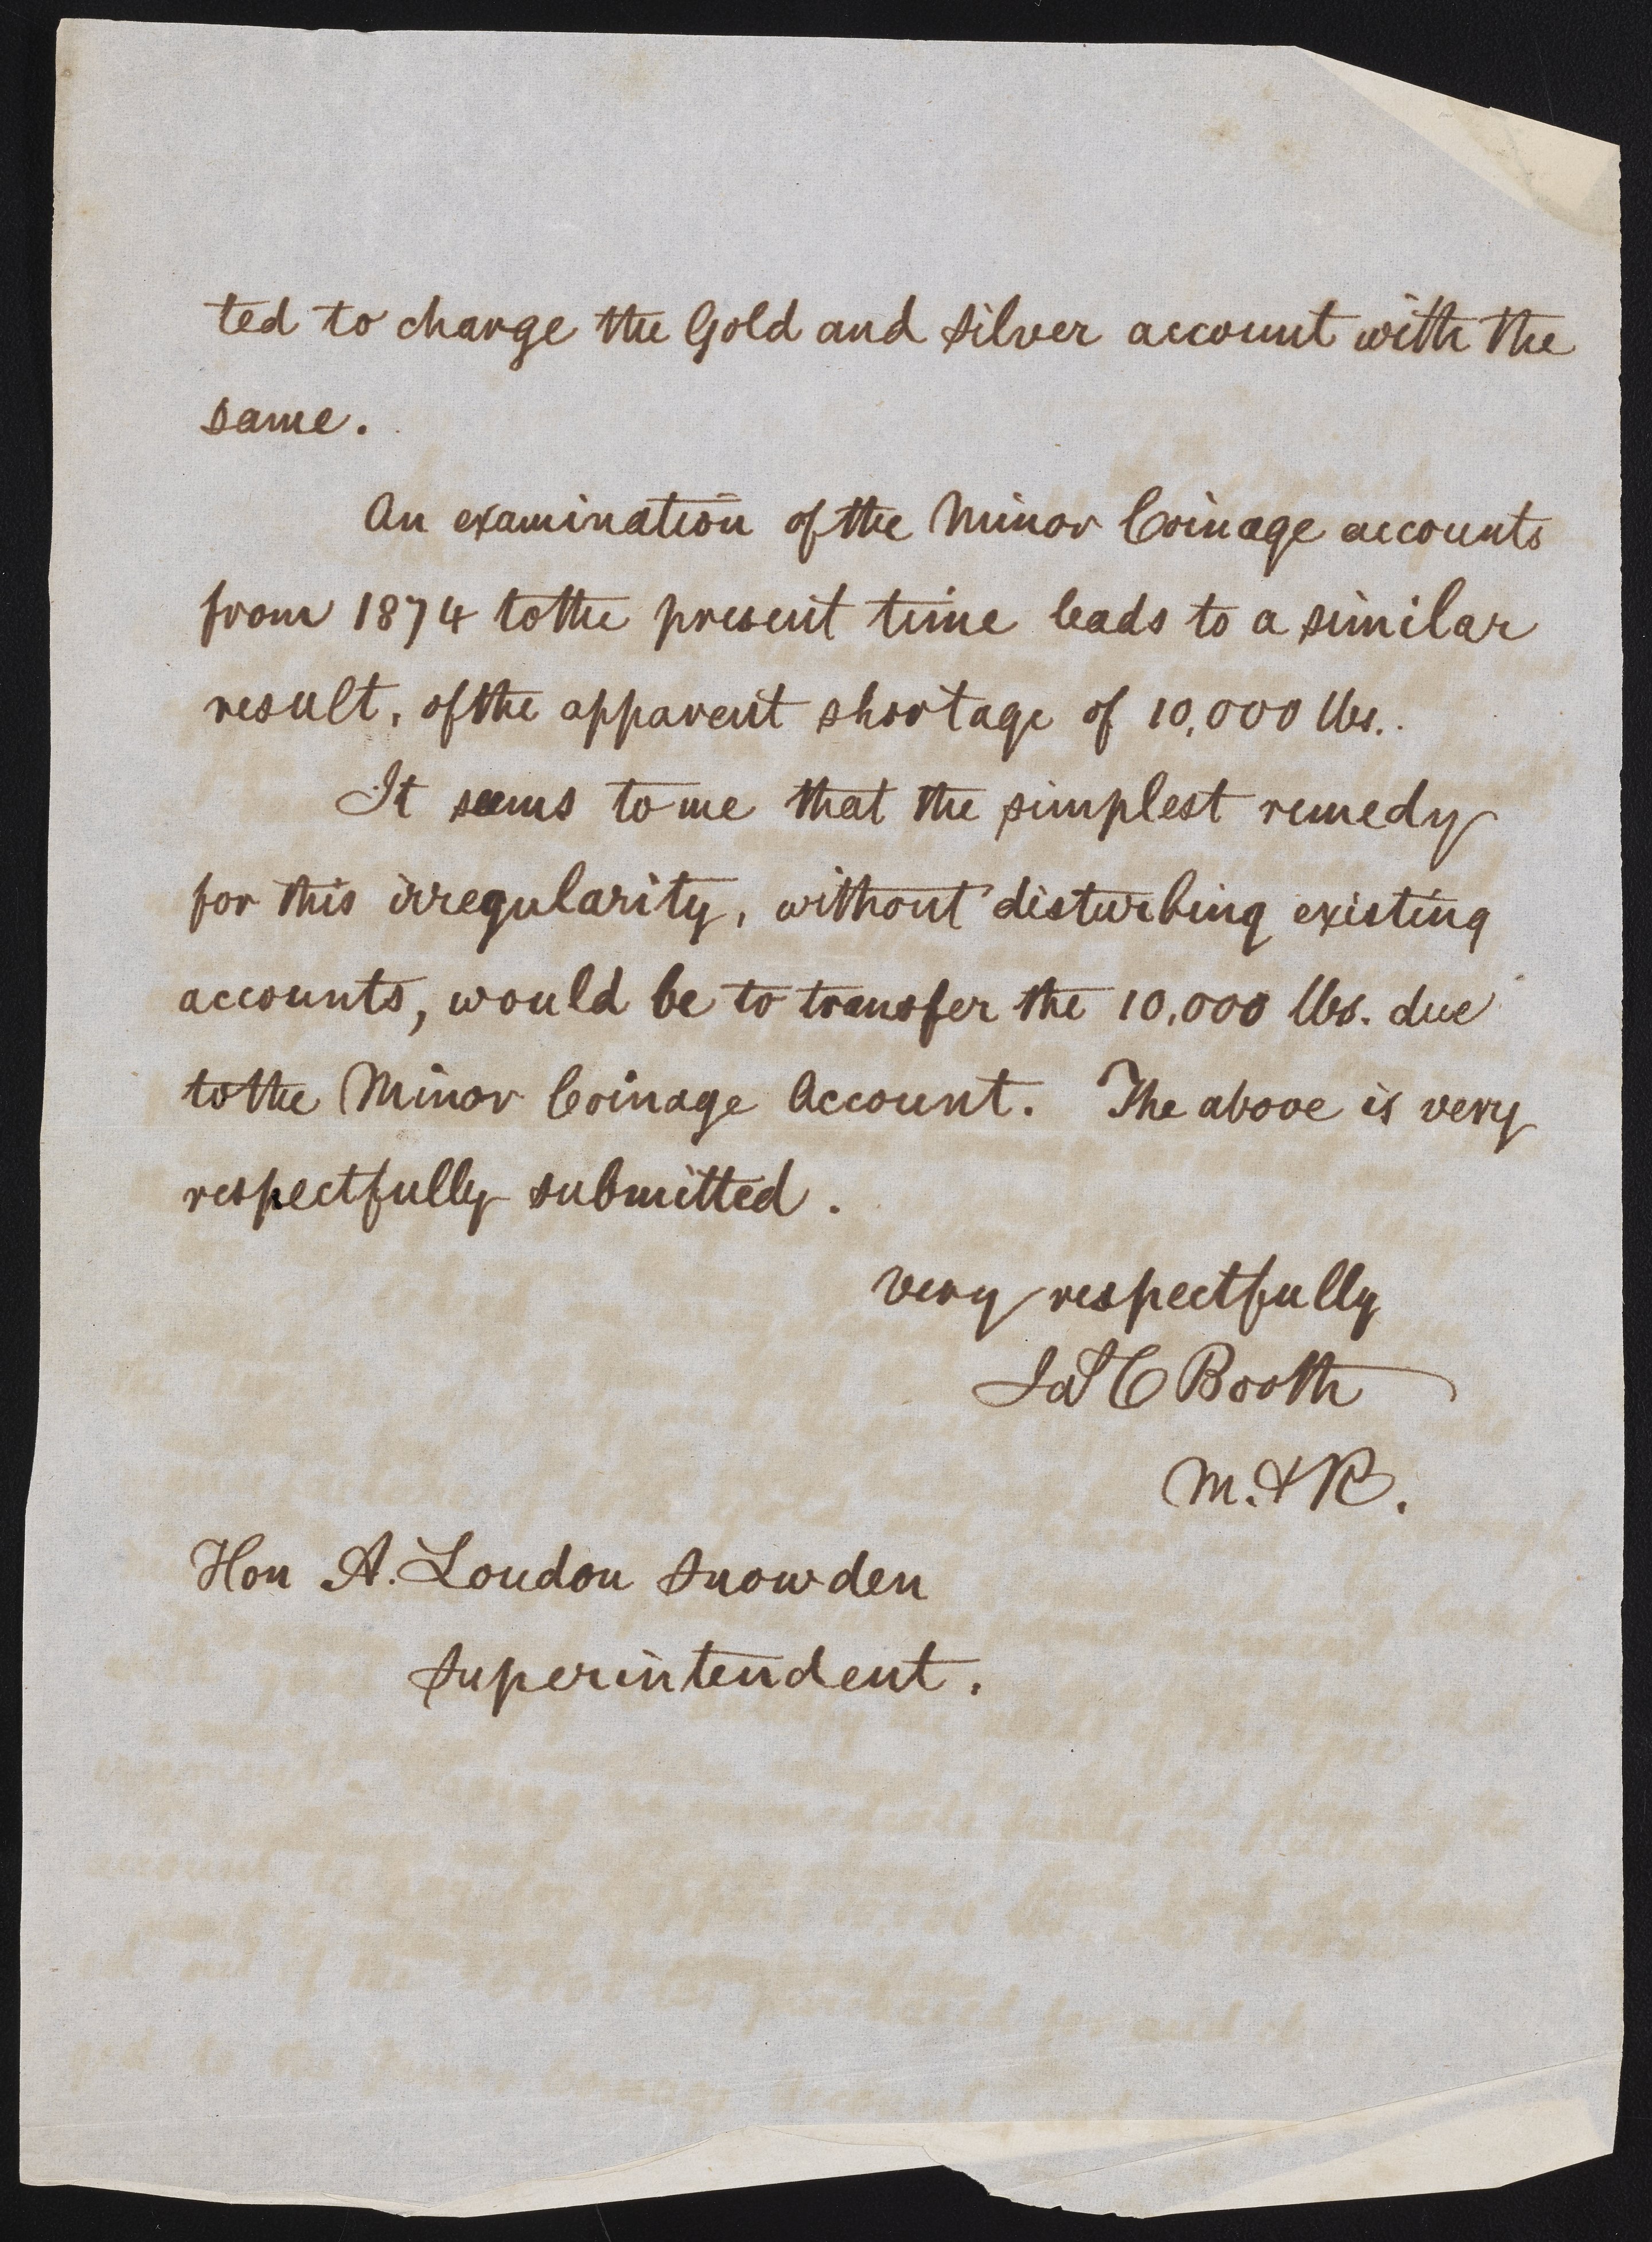 ted to charge the Gold and Silver account with the
same.
An examination of the Minor Coinage accounts
from 1874 to the present time leads to a similar
result, of the apparent shortage of 10,000 lbs.
It seems to me that the simplest remedy
for this irregularity, without disturbing existing
accounts, would be to transfer the 10,000 lbs. due
to the Minor Coinage Account. The above is very
respectfully submitted.
Very respectfully
Jas C Booth
M. & R.
Hon A. Loudon Snowden
Superintendent.